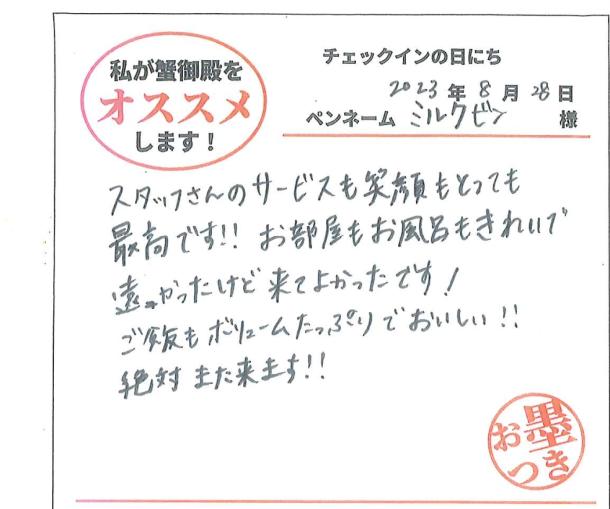 私が蟹御殿を
オススメ
します！
チェックインの日にち
2023年8月28日
ペンネーム ミルクビン 様
スタッフさんのサービスも笑顔もとっても
最高です!! お部屋もお風呂もきれいで
遠かったけど来てよかったです！
ご飯もボリュームたっぷりでおいしい!!
絶対また来ます!!
お墨
つき